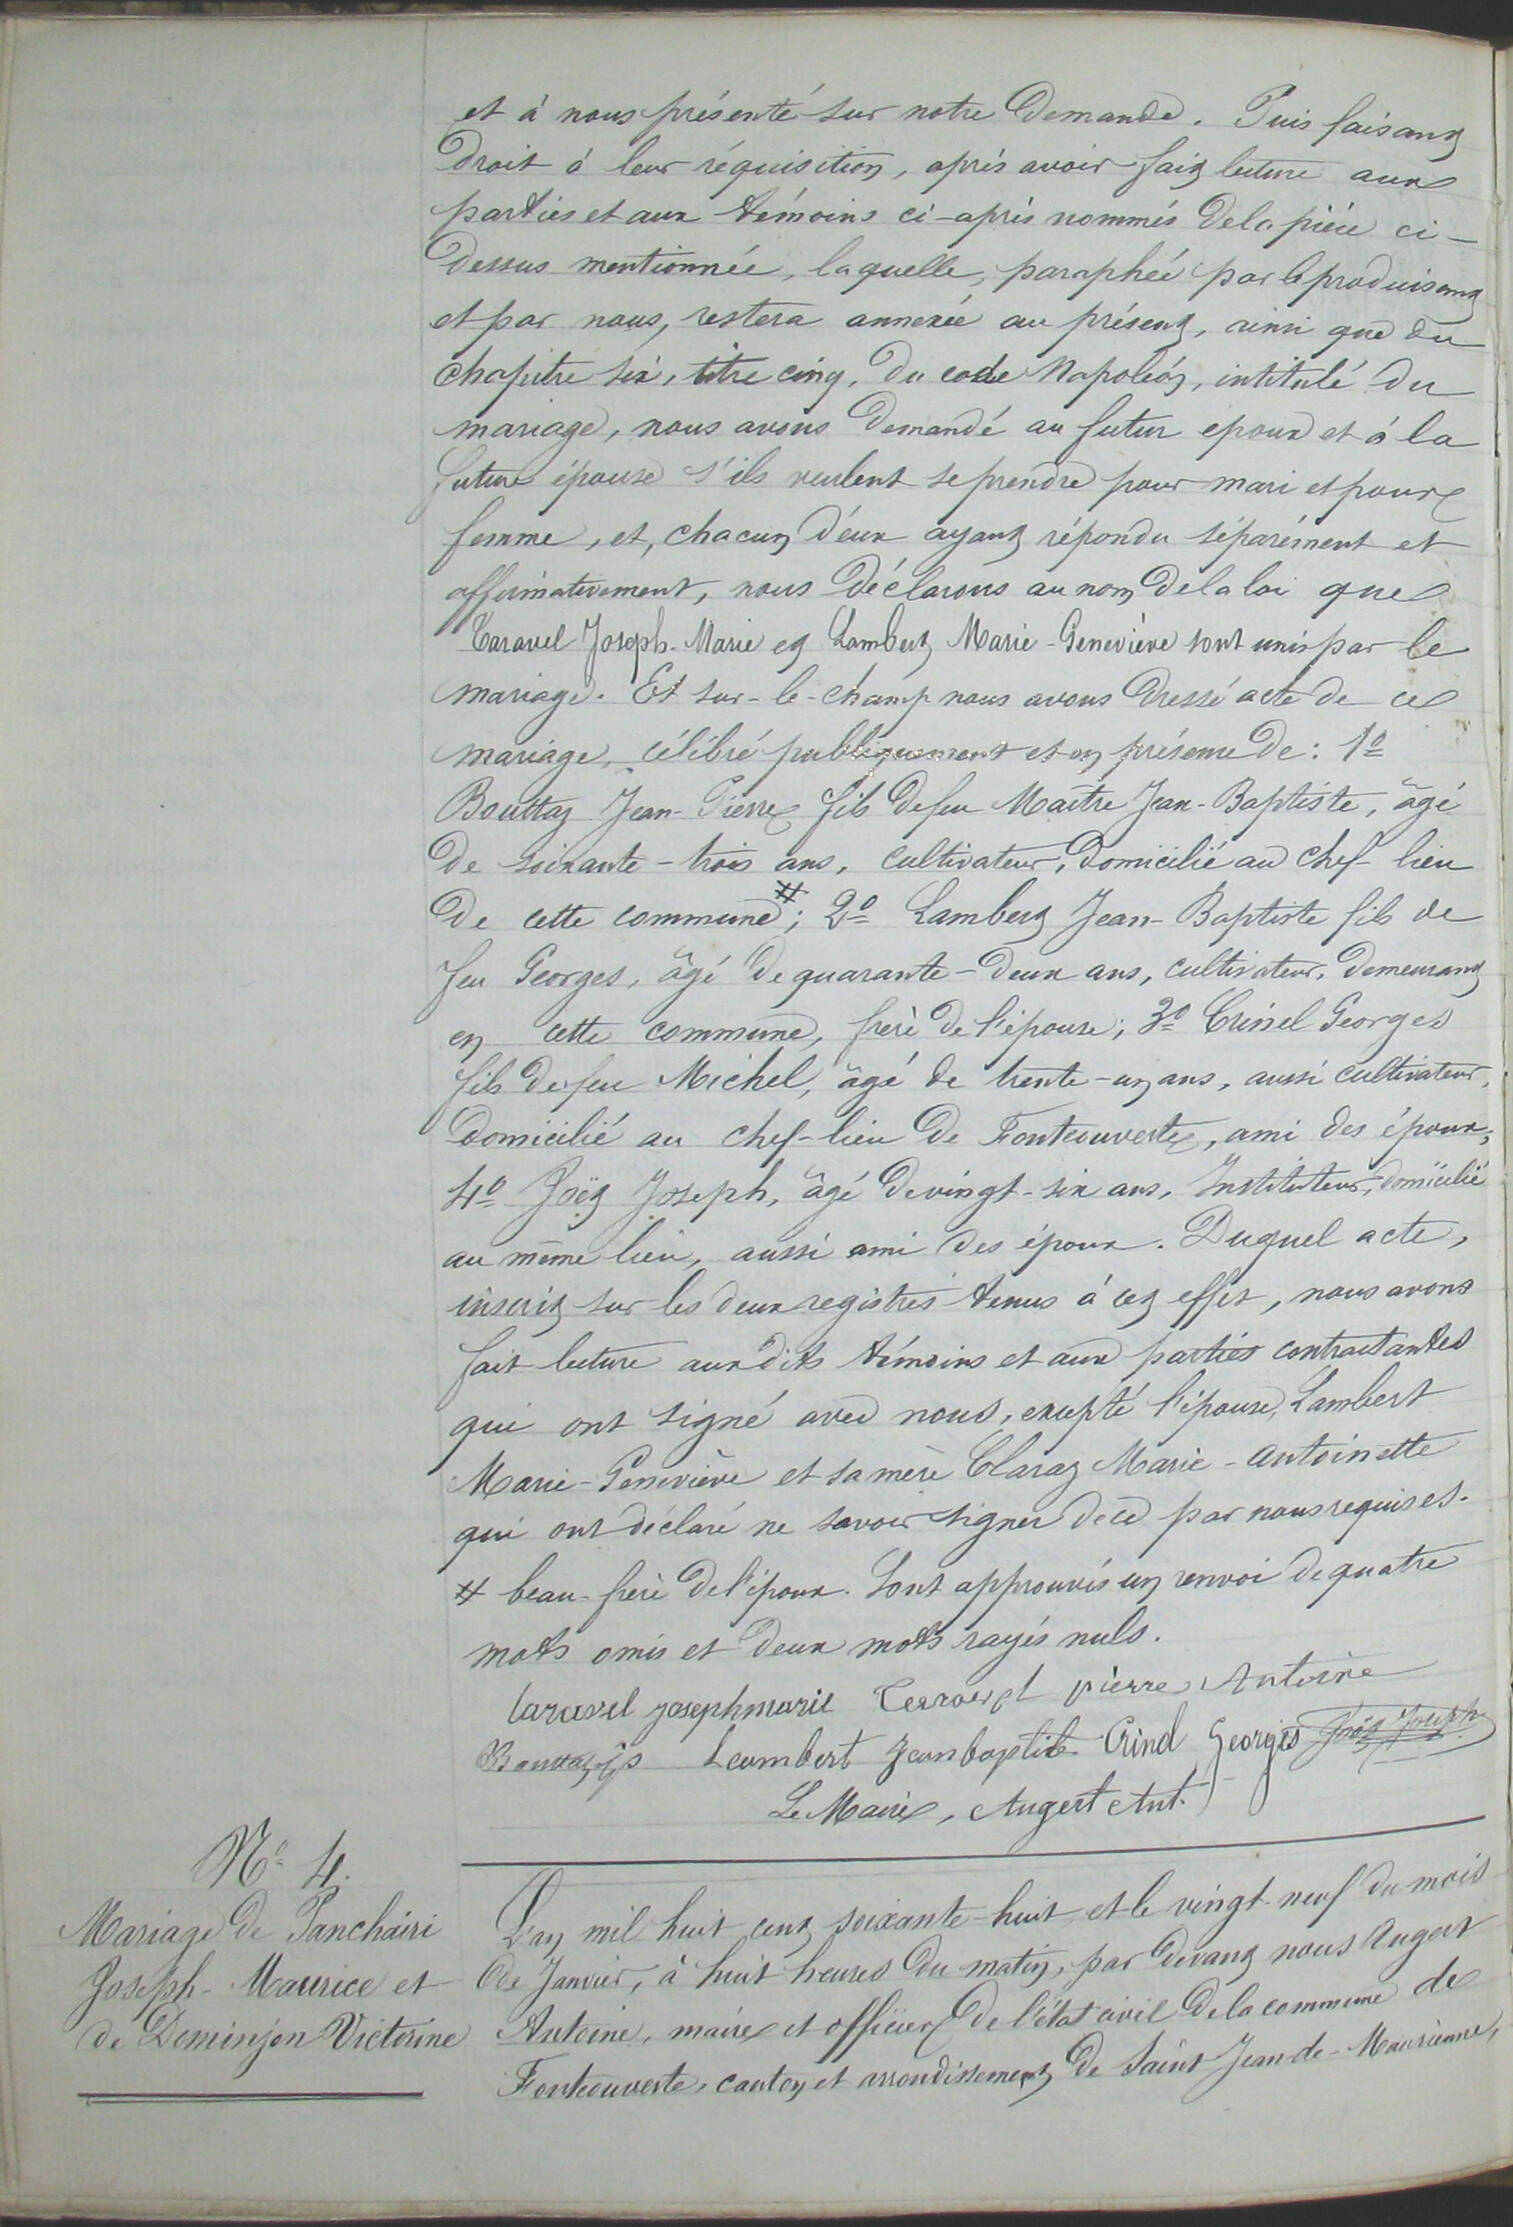 et à nous présenté sur notre demande. Puis faisant
droit à leur réquisition, après avoir fait lecture aux
parties et aux témoins ci-après nommés de la pièce ci-
dessus mentionnée, laquelle, paraphée par le produisant
et par nous, restera annexée au présent, ainsi que du
chapitre six, titre cinq, du code Napoléon, intitulé du
mariage, nous avons demandé au futur epoux et à la
future épouse s'ils veulent se prendre pour mari et pour
femme, et, chacun d'eux ayant répondu séparément et
affirmativement, nous déclarons au nom de la loi que
Taravel Joseph-Marie et Lambert Marie-Geneviève sont unis par le
mariage. Et sur-le-champ nous avons dressé acte de ce
mariage, célébré publiquement et en présence de : 1º
Bouttaz Jean-Pierre fils de feu Maître Jean-Baptiste, âgé
de soixante-trois ans, cultivateur, domicilié au chef-lieu
de cette commune #; 2º Lambert Jean-Baptiste fils de
feu Georges, âgé de quarante-deux ans, cultivateur, demeurant
en cette commune, frère de l'épouse; 3º Crinel Georges
fils de feu Michel, âgé de trente-un ans, aussi cultivateur,
domicilié au chef-lieu de Fontcouverte, ami des époux;
4º Joët Joseph, âgé de vingt-six ans, Instituteur, domicilié
au même lieu, aussi ami des époux. Duquel acte,
inscrit sur les deux registres tenus à cet effet, nous avons
fait lecture aux dits témoins et aux parties contractantes
qui ont signé avec nous, excepté l'épouse, Lambert
Marie-Geneviève et sa mère Claraz Marie-Antoinette
qui ont déclaré ne savoir signer de ce par nous requises.
# beau-frère de l'époux. Sont approuvés un renvoi de quatre
mots omis et deux mots rayés nuls.
taravel josephmarie pierre Antoine
Bouttaz jp Lambert jeanbaptiste Crinel Georges Joët Joseph
Le Maire, Augert Ant.
Nº 4.
Mariage de Panchairi
Joseph-Maurice et
de Dominjon Victorine
L'an mil huit cent soixante-huit et le vingt-neuf du mois
de Janvier, à huit heures du matin, par devant nous Augert
Antoine, maire et officier de l'état civil de la commune de
Fontcouverte, canton et arrondissement de Saint-Jean-de-Maurienne,